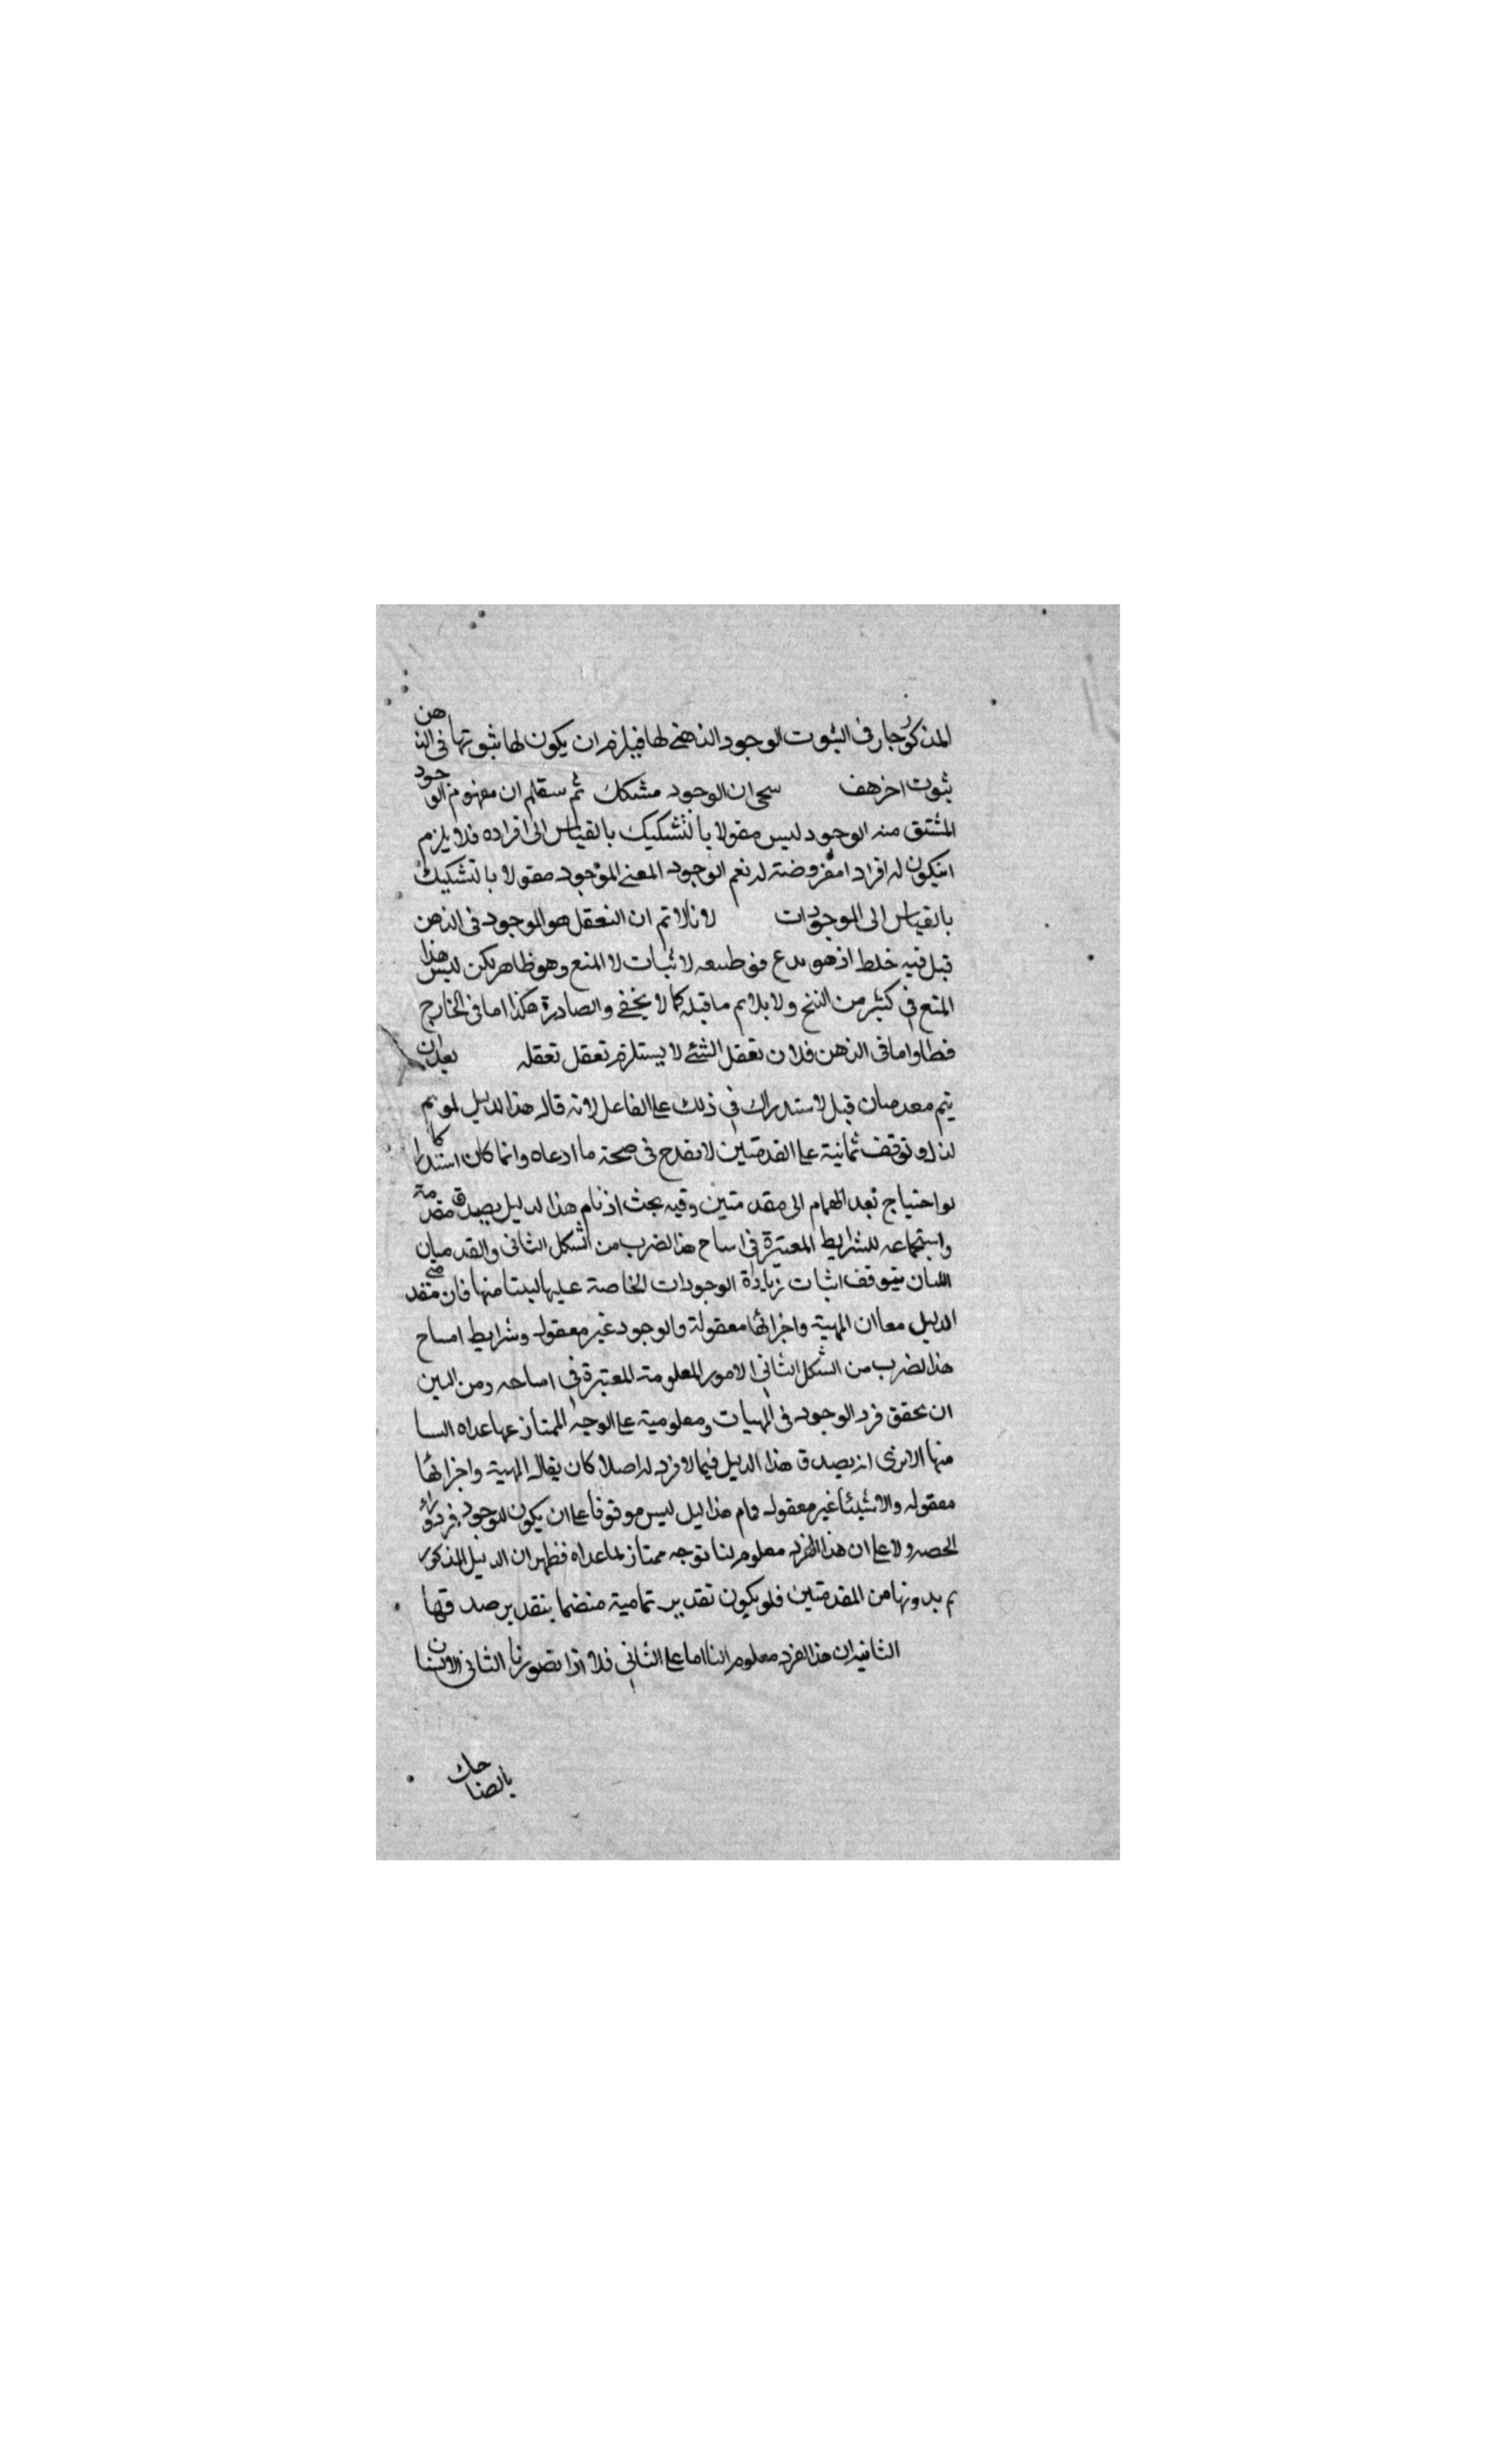 المذكور جار فى الثبوت الوجود الذهنى لها فيلزم ان يكون لها ثبوتها فى الذهن
ثبوت اخر هف سحى ان الوجود مشكك ثم سقلم ان مفهوم الوجود
المشتق منه الوجود ليس مقولا بالتشكيك بالقياس الى افراده فلا يلزم
انيكون له افراد امفروضته له نعم الوجود المعنى الموجود مقولا بالتشكيك
بالقياس الى الموجودات لانا لاتم ان التعقل هو الوجود فى الذهن
قيل فيه خلط اذ هو مدع فى طلبه لاثبات لا المنع وهو ظاهر لكن ليس هذا
المنع فى كثير من النسخ ولا يلايم ما قبله كما لا يخفى والصادرة هكذا اما فى الخارج
فطا واما فى الذهن فلان تعقل الشئ لا يستلزم تعقل تعقله بعد ان
يتم معدمان قيل لاستدراك فى ذلك على الفاعل لانه قال هذا الدليل لو تم
لذ لو توقف ثمانية على القدمتين لا يقدح فى صحة ما ادعاه وانما كان استدراكا
لو احتياج بعد المام الى مقدمتين وفيه بحث اذ تام هذا لدليل بصدق مقدمة
واستجماعه للشرايط المعتبرة فى اساح هذا لضرب من الشكل الثانى والقدمان
اللتان يتوقف اثبات زيادة الوجودات الخاصة عليها ليستا منها فان مقدمتى
الدليل معا ان المهية واجزائها معقولة والوجود غير معقول وشرايط اساح
هذا لضرب من الشكل الثانى الامور المعلومة المعتبرة فى اساحه ومن البين
ان تحقق فرد الوجود فى المهيات ومعلومية على الوجه الممتاز عما عداه لستا
منها الا ترى انه يصدق هذا الدليل فيما لا فرد له اصلا كان يقال المهية واجزائها
معقوله والاشيئا غير معقول وام هذا ليل ليس موقوفا على ان يكون للوجود فرد وراء
الحصه ولا على ان هذا الفرد معلوم لنا بوجه ممتاز لما عداه فظهر ان الدليل المذكور
تم بدونها من المقدمتين فلو يكون تقدير تمامية منضما بتقدير صدقها
الثانية ان هذا الفرد معلوم لنا اما على الثانى فلا اذا تصورنا الثانى الانسان
بالضاحك